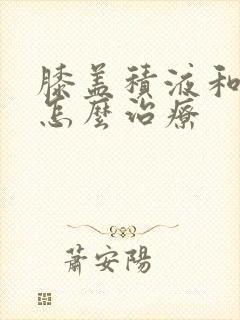 膝盖積液和
怎麼治療
蕭安陽